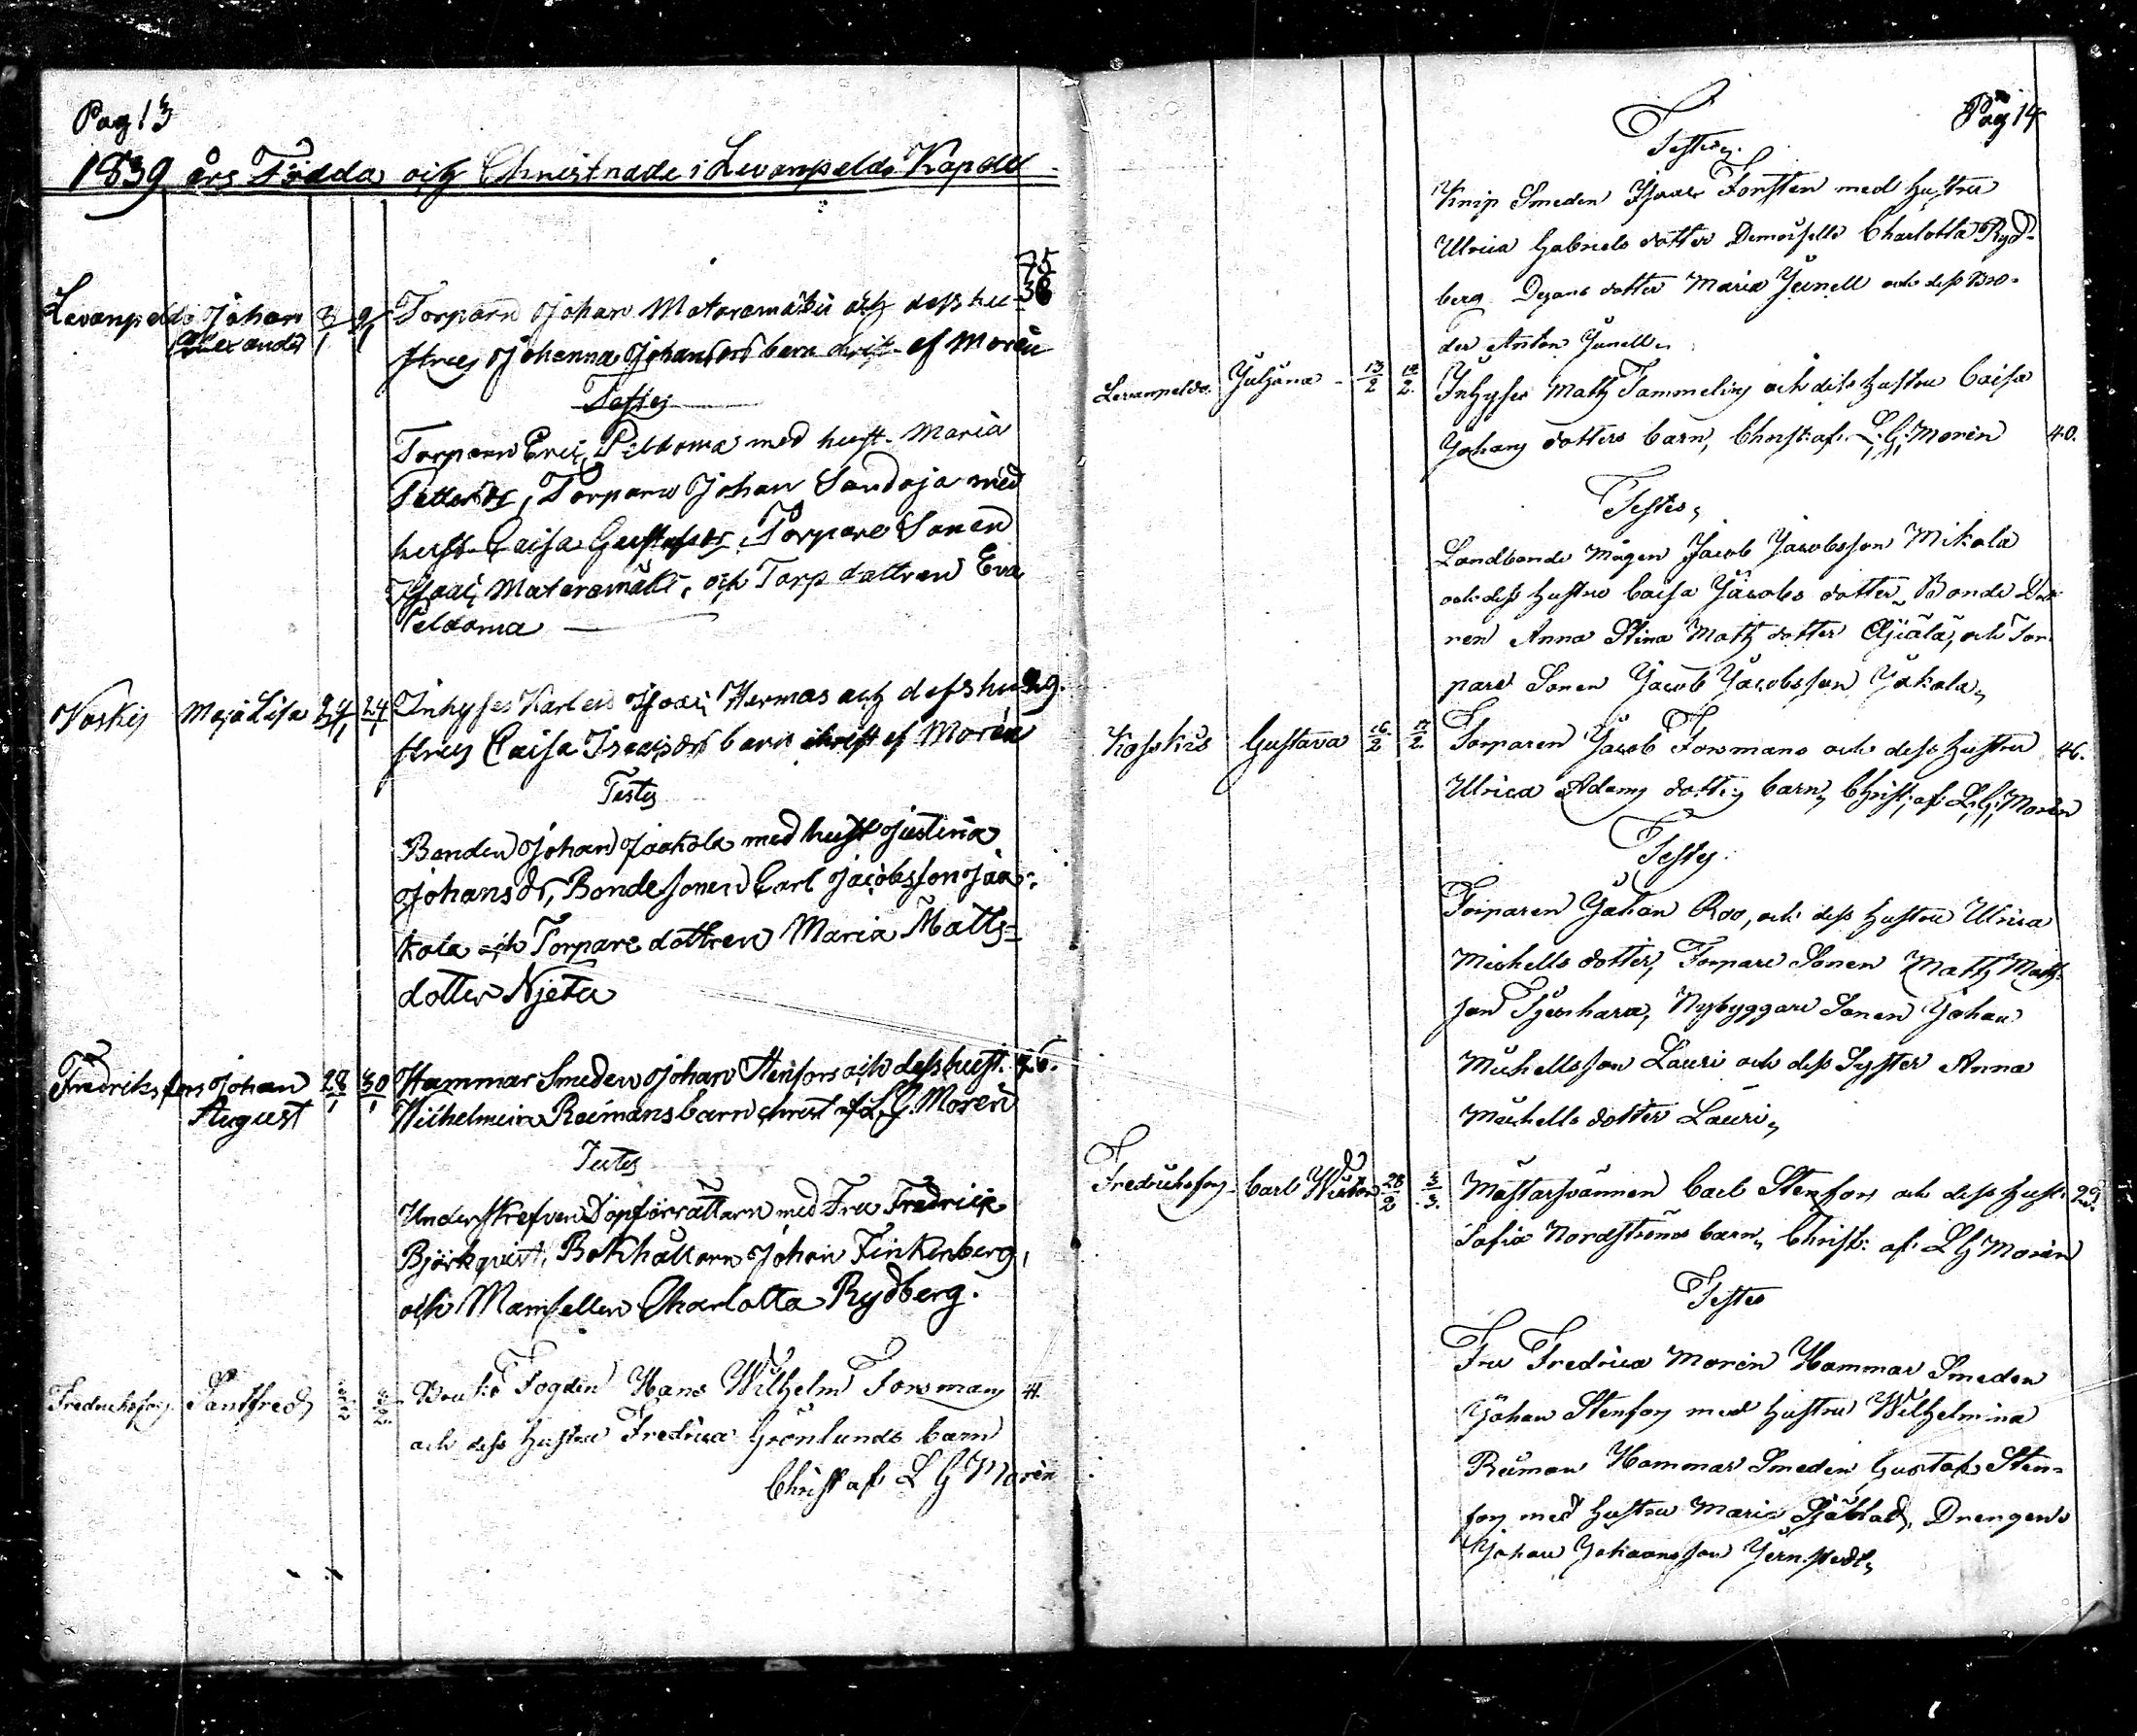 Pag 13
1839 års Födda och Christnade i Levanpeldo Kapell
75
Levanpeldo Johan 8/1 9/1 Torparn Johan Mataramäki och dess hu- 38
Alexander strus Johanna Johansdrs barn christ. af Morén
Testes
Torparn Eric Peldoma med hust. Maria
Pettersdr, Torparn Johan Sandoja med
hust. Caisa Gustafsdr, Torpare Sonen
Isaac Mataramäki, och Torp dottren Eva
Peldoma
Koskis Maja Lisa 24/1 24/1 Inhyses Karlen Isaac Hermas och dess hu 29.
strus Caisa Isaacsdrs barn christ af Morén
Testes
Bonden Johan Jaakola med hust Justina
Johansdr, Bondesonen Carl Jacobsson Jaa-
kola och Torpare dottren Maria Matts-
dotter Njeta
Fredriksfors Johan 28/1 30/1 Hammar Smeden Johan Stenfors och dess hust. 26.
August Wilhelmina Reimans barn christ af L.G. Morén
Testes
Underskrefven Dopförrättarn med Fru Fredrica
Björkqvist, Bokhållarn Johan Finkenberg,
och Mamsellen Charlotta Rydberg.
Fredrichsfors Santfred Bruks Fogden Hans Wilhelm Forsmans 4.
och dess hustru Fredrica Grönlunds barn
Christ af L G Morén
Pag 14
Testes
Knip Smeden Isaac Forsten med hustru
Ulrica Gabriels dotter Demoiselle Charlotta Ryd-
berg Degars dotter Maria Junell och dess Bro-
der Anton Junell
Levanpeldo. Juliana 13/2 Inhyses Matts Tammelin och dess hustru Caisa
Johans dotters barn, Christ: af: L: G: Morén 40.
Testes
Landbonde Mågen Jacob Jacobsson Mikola
och dess hustru Caisa Jacobs dotter, Bonde Dott
ren Anna Stina Matts dotter och Tor-
pare Sonen Jacob Jacobsson Jakola
Koskis Gustava 16/2 17/2 Torparen Jacob Forsmans och dess hustru 46.
Ulrica Adams dotters barn, Christ: af: L: G: Morén
Testes.
Torparen Johan Roo, och dess hustru Ulrica
Michells dotter, Torpare Sonen Matts Matts-
son Nybyggare Sonen Johan
Michellsson Lauri och dess Syster Anna
Michells dotter Lauri
Fredrichsfors Carl Wictor 28/2 3/3. Mästarsvännen Carl Stenfors och dess hust: 29.
Sofia Nordströms barn, Christ: af: L G Morén
Testes
Fru Fredrica Morén Hammar Smeden
Johan Stenfors med hustru Wilhelmina
Reiman Hammar Smeden Gustaf Sten-
fors med hustru Maria Sjöblad, Drengen
Johan Johansson Jernstedt